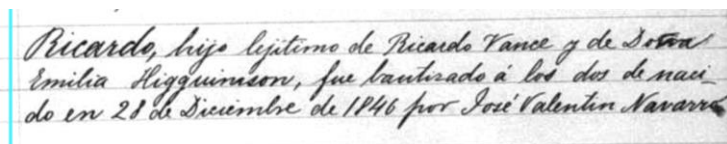 Ricardo, hijo lejítimo de Ricardo Vance y de Doña
Emilia Higguinson, fue bautizado á los dos de naci_
do en 28 de Diciembre de 1846 por José Valentin Navarro